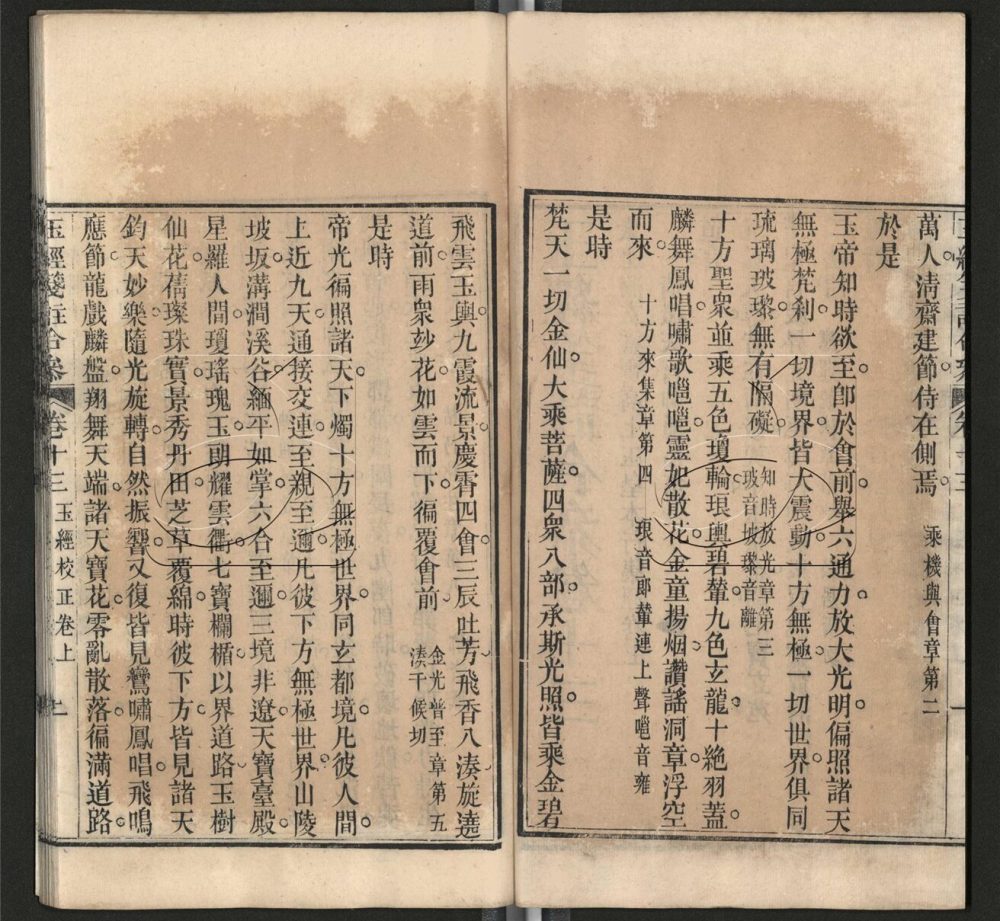 萬人淸齋建節侍在側焉 乘機與會章第二
於是
玉帝知時欲至卽於會前舉六通力放大光明徧照諸天
無極梵刹一切境界皆大震動十方無極一切世界俱同
琉璃玻瓈無有隔礙 知時放光章第三
玻音坡瓈音離
十方聖衆並乘五色瓊輪琅輿碧輦九色玄龍十絕羽蓋
麟舞鳳唱嘯歌嗈嗈靈妃散花金童揚烟讚謠洞章浮空
而來 十方來集章第四 琅音郎輦連上聲嗈音雍
是時
梵天一切金仙大乘菩薩四衆八部承斯光照皆乘金碧
飛雲玉輿九霞流景慶霄四會三辰吐芳飛香八湊旋遶
道前雨衆玅花如雲而下徧覆會前 金光普至章第五
湊千候切
是時
帝光徧照諸天下燭十方無極世界同玄都境凡彼人間
上近九天通接交連至親至邇凡彼下方無極世界山陵
坡坂溝澗溪谷緬平如掌六合至邇三境非遼天寶臺殿
星羅人間瓊瑤瑰玉明耀雲衢七寶欄楯以界道路玉樹
仙花蒨璨珠實景秀丹田芝草覆綿時彼下方皆見諸天
鈞天妙樂隨光旋轉自然振響又復皆見鸞嘯鳳唱飛鳴
應節龍戲麟盤翔舞天端諸天寶花零亂散落徧滿道路
玉經箋註合叅 卷十三 玉經校正卷上